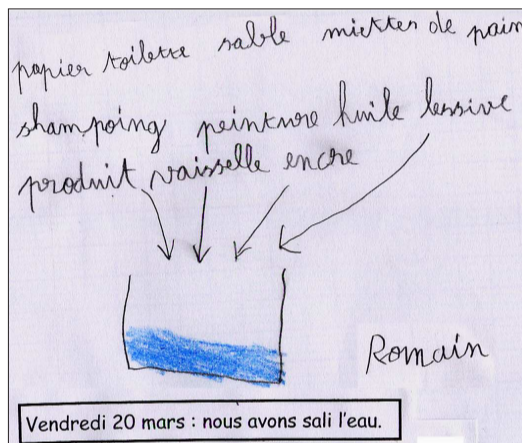 papier toilette sable miettes de pain
shampoing peinture huile lessive
produit vaisselle encre
Romain
Vendredi 20 mars : nous avons sali l'eau.